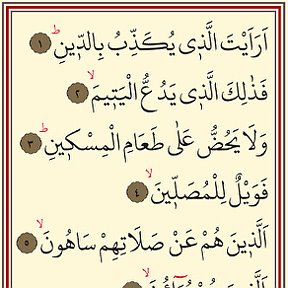 اَرَاَيْتَ الَّذٖى يُكَذِّبُ بِالدّٖينِۜ ﴿١﴾
فَذٰلِكَ الَّذٖى يَدُعُّ الْيَتٖيمَۙ ﴿٢﴾
وَلَا يَحُضُّ عَلٰى طَعَامِ الْمِسْكٖينِۜ ﴿٣﴾
فَوَيْلٌ لِلْمُصَلّٖينَۙ ﴿٤﴾
اَلَّذٖينَ هُمْ عَنْ صَلَاتِهِمْ سَاهُونَۙ ﴿٥﴾